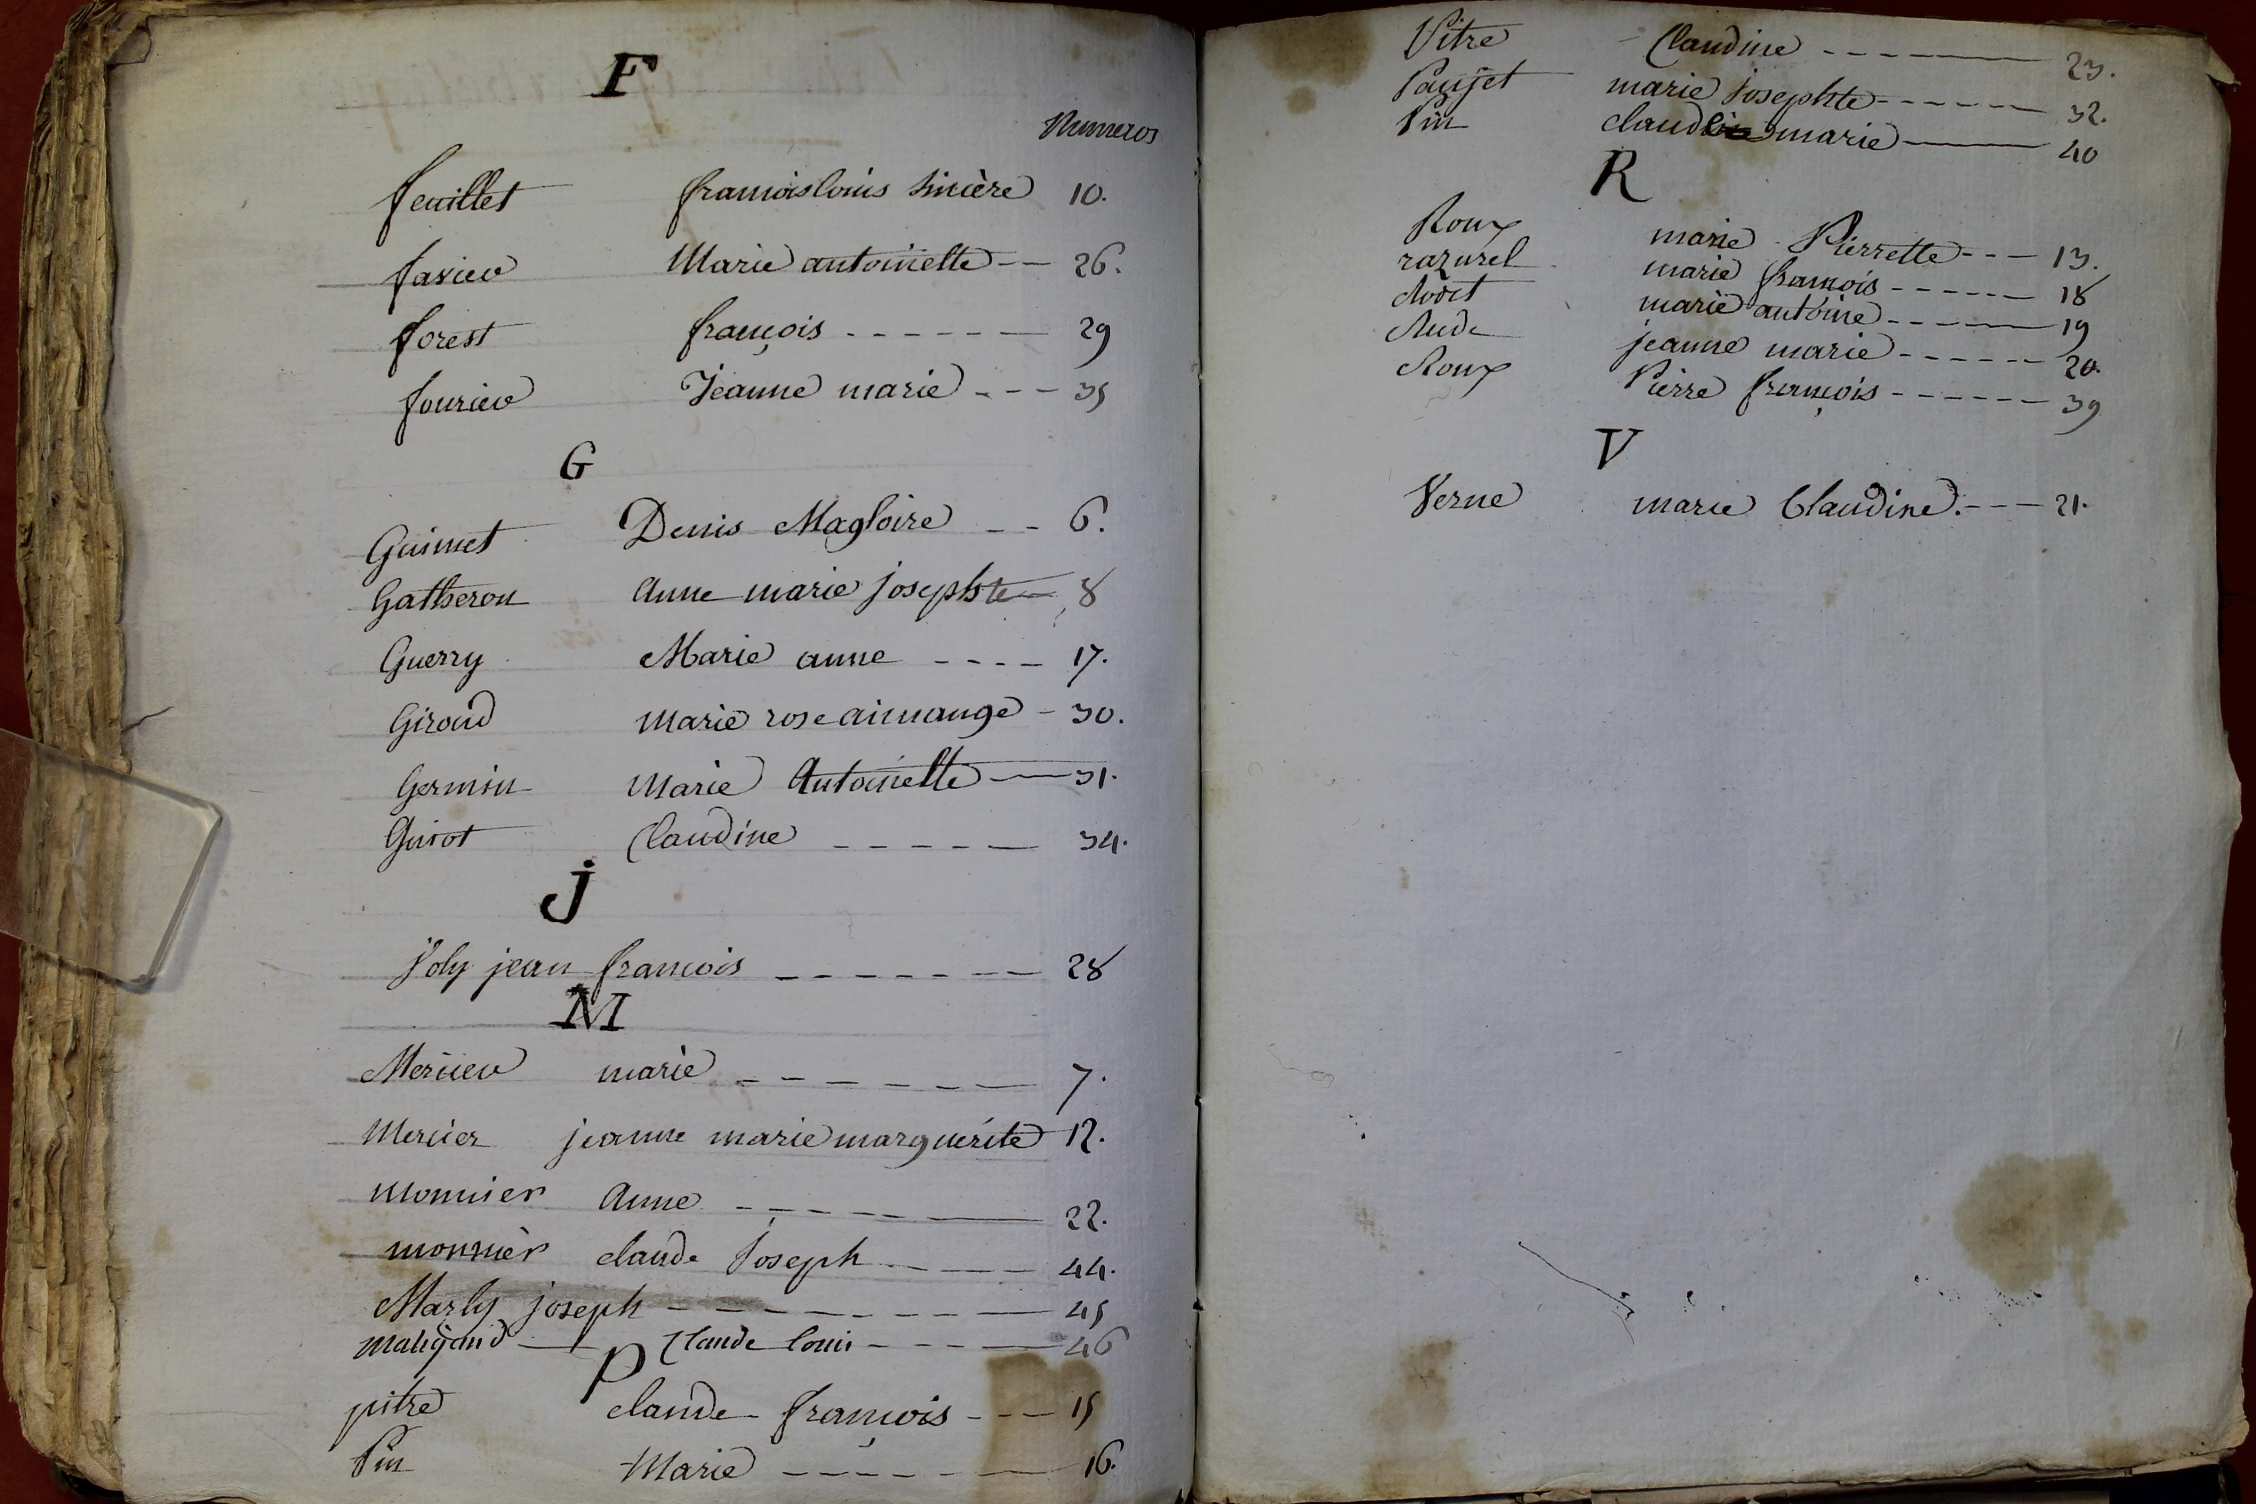 F
Numeros
feuillet françoislouis sincère 10.
favier Marie antoinette -- 26.
forest françois ------ 29
fourier Jeanne marie --- 35
G
Guimet Denis Magloire -- 6.
Gatheron anne marie josephte 8
Guerry Marie anne ---- 17.
Giroud marie rose aimange - 30.
Germin Marie Antoinette -- 31.
Guiot Claudine ----- 34.
J
Joly jean francois ------ 28
M
Mercier marie ------ 7.
Mercier jeanne marie marguérite 12.
monnier anne ----- 22.
monnier claude Joseph ---- 44.
Marly joseph ------- 45
maligand Claude louis ---- 46
P
pitre claude françois --- 15
Pin Marie ------ 16.
Pitre Claudine ---- 23.
Paujet marie Josephte ------ 32.
Pin claud marie -- 40
R
Roux marie Pierrette --- 13.
razurel marie francois ------ 18
Rodet marie antoine ---- 19
Rude jeanne marie ------ 20.
Roux Pierre françois ------ 39
V
Verne marie Claudine. --- 21.